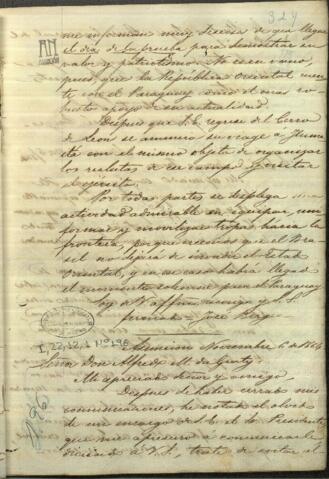 329
me informan muy deseosa de que llegue
el dia de la prueba para demostrar su
valor y patriotismo. No es en vano,
pues, que la República Oriental cuen-
te con el Paraguay como el mas ro-
busto apoyo en su actualidad.
Despues que S.E. regrese del Cerro
de Leon se anuncia su viage a Humai-
tá con el mismo objeto de organizar
los reclutas de ese campo y visitar
el ejército.
Por todas partes se desplega una
actividad admirable en equipar, uni-
formar y movilizar tropas hacia la
frontera, porque creemos que el Bra-
sil no dejará de invadir el Estado
Oriental, y en ese caso habia llegado
el momento solemne para el Paraguay
Soy de V. affmo. amigo y S. S.
firmado - José Berges
I,22,12,1 Nº 196
Asuncion Noviembre 6 de 1864
Señor Don Alfredo M. du Graty
Mi apreciado Señor y amigo
Despues de haber cerrado mis
comunicaciones, he notado el olvido
de un encargo del S. E. el Sr. Presidente,
que me apresuro a comunicarle
diciendo a V. S., trate de evitar el
196